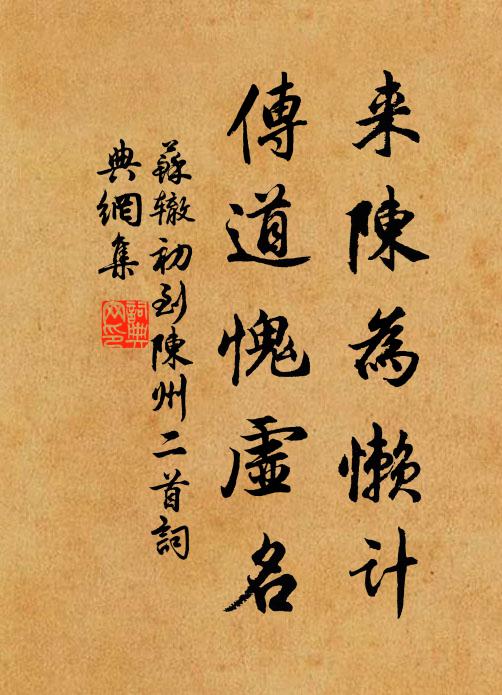 来陳為懶计
傳道愧虛名
蘇辙初到陳州二首詞
典網集
詞典
网印